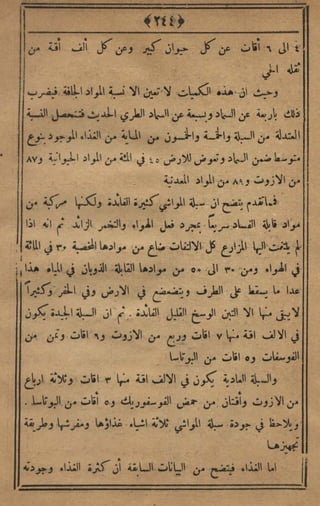 ﴿٢٤٤﴾
٤ الى ٦ أقات عن كل حيوان كبير وعن كل الف أقة من
ثقله الحي
وحيث ان هذه الكميات لا تعين الا نسبة المواد الجافة فيضرب
ذلك باربعة عن السماد وبسبعة عن السماد الطري الحديث فتتحصل النسبة
المعتدلة من السبلة والخمسة والخمسون من المئاية من الغذاء الموجود بنوع
متوسط ضمن السماد وتعوض للارض ٤٥ في المئة من المواد الحيوانية و٨٧
من الازوت و٨٩ من المواد المعدنية
فمما تقدم يتضح ان سبلة المواشي كثيرة الفائدة ولكنها مركبة من
مواد قابلة الفساد سريعاً بمجرد فعل الهواء والتخمر الزائد ثم انه اذا
لم يلتفت اليها المزارع كل الالتفات ضاع من موادها المخصبة ٣٠ في المائة
في الهواء ومن ٣٠ الى ٥٠ من موادها القابلة الذوبان في المياه هذا
عدا ما يسقط على الطرف ويتضعضع في الارض وفي الحفر وكثيراً
لا يبقى منها الا التبن الوسخ القليل الفائدة . ثم ان السبلة الجيدة يكون
في الالف اقة منها ٧ اقات وربع من الازوت و٦ اقات وثمن من
الفوسفات و٥ اقات من البوتاسا
والسبلة العادية يكون في الالف اقة منها ٣ اقات وثلاثة ارباع
من الازوت وأقتان من حمض الفوسفوريك و٥ أقات من البوتاسا .
ويلاحظ في جودة سبلة المواشي ثلاثة اشياء غذاؤها ومفرشها وطريقة
تجهيزها
اما الغذاء فيتضح من البيانات السابقة أن كثرة الغذاء وجودته